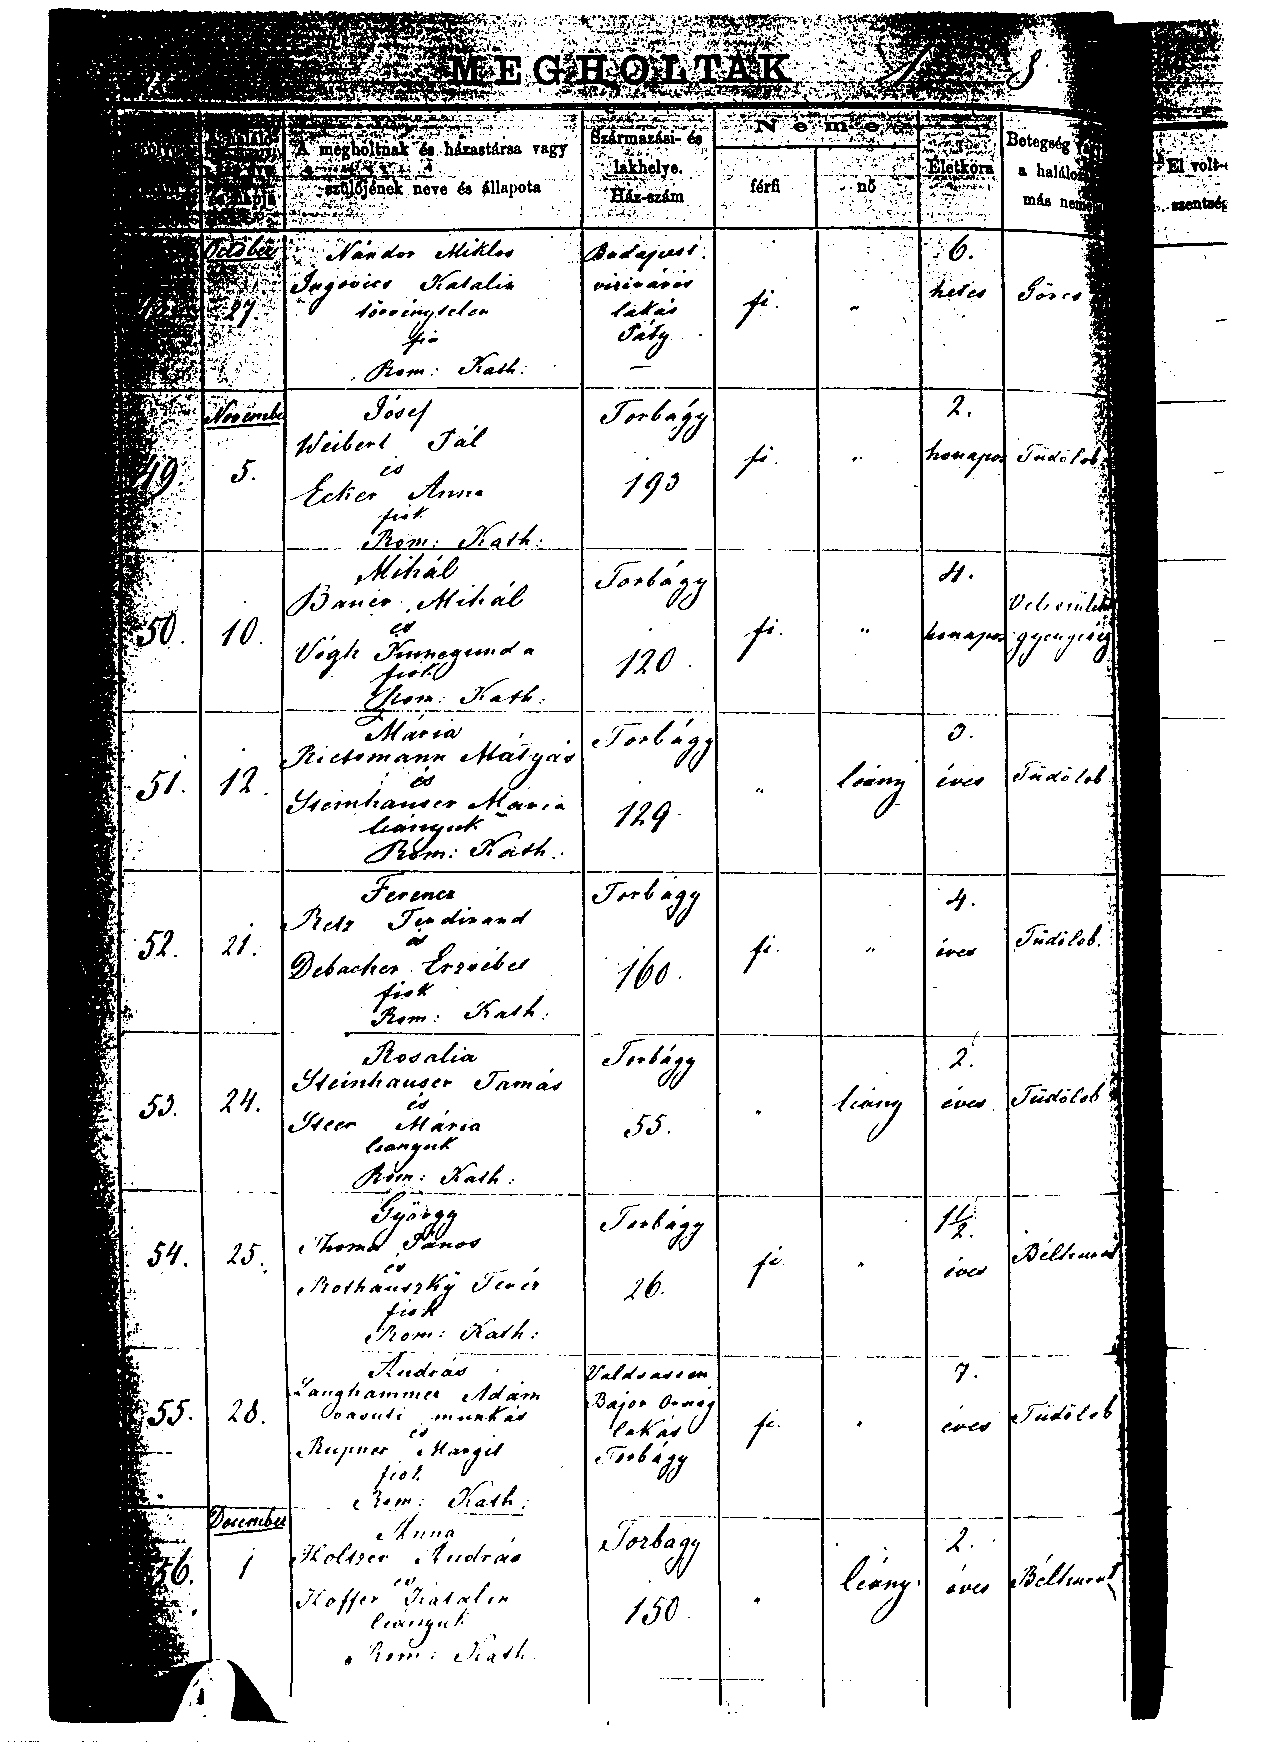 MEGHOLTAK
A megholtnak és házastársa vagy
szülőjének neve és állapota
Származási- és
lakhelye.
Ház-szám
Neme
férfi
nő
Életkora
Betegség
a halálo
más neme
El volt-e
szentség
October
27.
Nándor Miklos
Katalin
törvénytelen
fia
Rom: Kath:
Budapest
vizivárós
lakás
Páty
—
fi.
"
6.
hetes
Görcs
November
49.
5.
Jósef
Weibert Pál
és
Ecker Anna
fiok
Rom: Kath:
Torbágy
193
fi.
"
2.
honapos
Tüdőlob
50.
10.
Mihál
Bauer Mihál
és
Végh Kunnegunda
fiok
Rom: Kath:
Torbágy
120.
fi.
"
4.
honapos
gyengeség
51.
12.
Mária
Mátyás
és
Steinhauser Maria
leányuk
Rom: Kath:
Torbágy
129.
"
leány
3.
éves
Tüdőlob
52.
21.
Ferencz
Retz Ferdinand
és
Debacher Erzsébet
fiok
Rom: Kath:
Torbágy
160.
fi.
"
4.
éves
Tüdőlob.
53.
24.
Rosalia
Steinhauser Tamás
és
Steer Mária
leanyuk
Rom: Kath:
Torbágy
55.
"
leány
2.
éves
Tüdőlob
54.
25.
György
Thoma János
és
Teréz
fiok
Rom: Kath:
Torbágy
26.
fi.
"
1 1/2.
éves
Bélhurut
55.
28.
András
Langhammer Adám
vasuti munkás
és
Rupner Margit
fiok
Rom: Kath:
Valdsassen
Bajor Orság
lakás
Torbágy
fi.
"
7.
éves
Tüdőlob
December
56.
1
Anna
Holtzer András
és
Hoffer Katalin
leányuk
Rom: Kath.
Torbagy
150.
"
leány.
2.
éves
Bélhurut